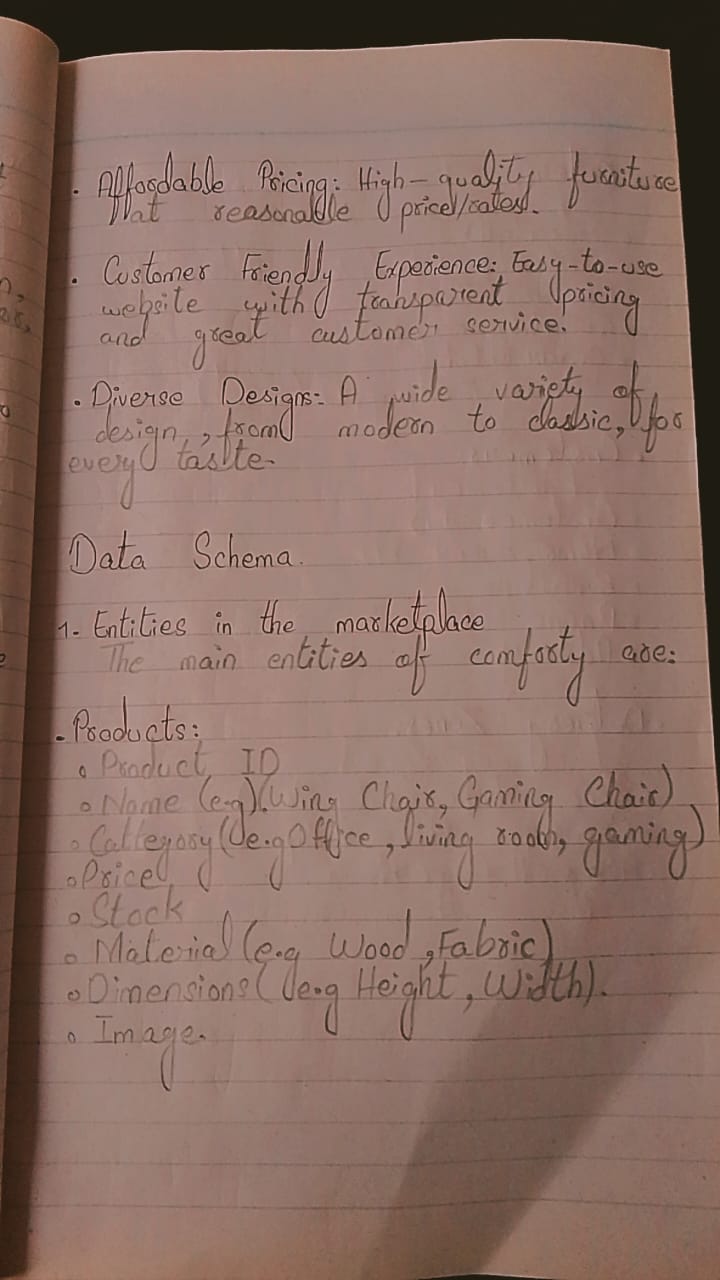 . Affordable Pricing: High-quality furniture
at reasonable price/rates.
. Customer Friendly Experience: Easy-to-use
website with transparent pricing
and great customer service.
. Diverse Designs:- A wide variety of
design, from modern to classic, for
every taste.
Data Schema.
1- Entities in the marketplace
The main entities of comforty are:
- Products:
◦ Product ID
◦ Name (e.g) (Wing Chair, Gaming Chair)
◦ Cattegory (e.g Office, living room, gaming)
◦ Price
◦ Stock
◦ Material (e.g Wood, Fabric)
◦ Dimensions (e.g Height, Width).
◦ Image.